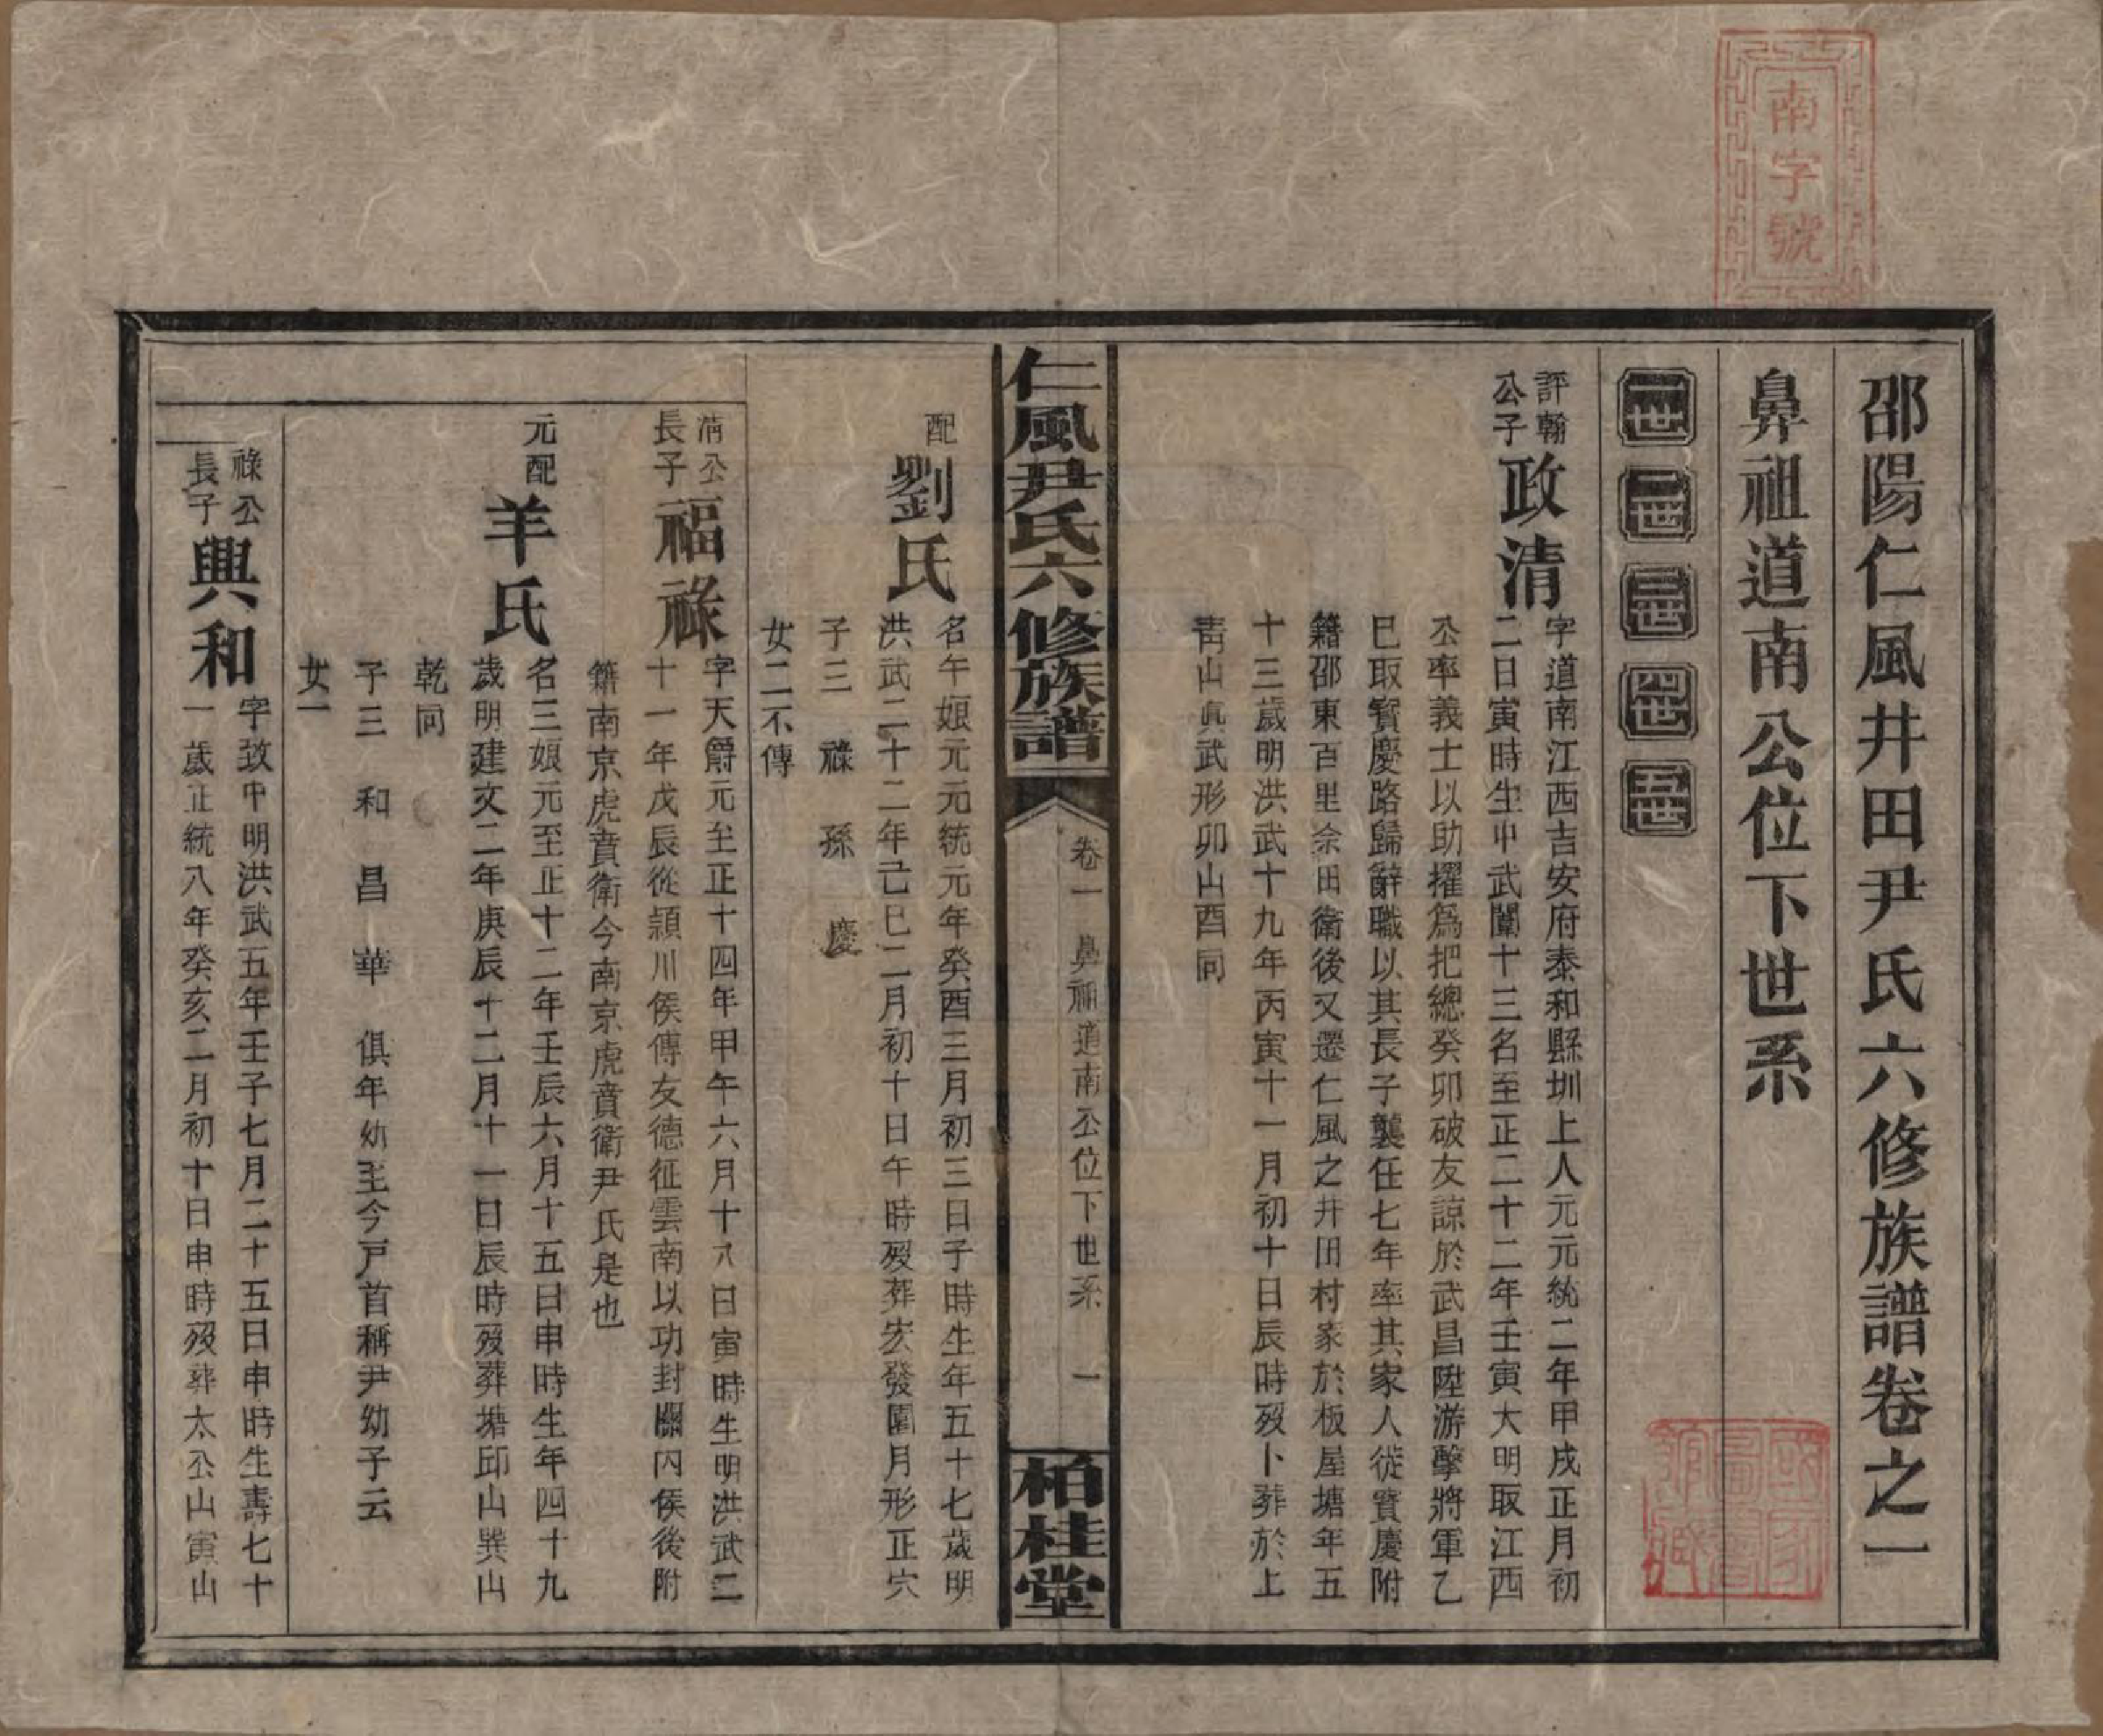 南字號
邵陽仁風井田尹氏六修族譜卷之一
鼻祖道南公位下世系
一世 二世 三世 四世 五世
評翰
公子
政清
字道南江西吉安府泰和縣圳上人元元統二年甲戌正月初
二日寅時生中武闈十三名至正二十二年壬寅大明取江西
公率義士以助擢爲把總癸卯破友諒於武昌陞游擊將軍乙
巳取寶慶路歸辭職以其長子襲任七年率其家人徙寶慶附
籍邵東百里佘田衛後又遷仁風之井田村家於板屋塘年五
十三歲明洪武十九年丙寅十一月初十日辰時歿卜葬於上
靑山眞武形卯山酉同
仁風尹氏六修族譜
卷一 鼻祖道南公位下世系 一
柏桂堂
配
劉氏
名午娘元元統元年癸酉三月初三日子時生年五十七歲明
洪武二十二年己巳二月初十日午時歿葬宏發園月形正穴
子三 祿 孫 慶
女二不傳
淸公
長子
福祿
字天爵元至正十四年甲午六月十八日寅時生明洪武二
十一年戊辰從潁川侯傅友德征雲南以功封關內侯後附
籍南京虎賁衛今南京虎賁衛尹氏是也
元配
羊氏
名三娘元至正十二年壬辰六月十五日申時生年四十九
歲明建文二年庚辰十二月十一日辰時歿葬塘邱山巽山
乾同
子三 和 昌 華 俱年幼至今戸首稱尹幼子云
女一
祿公
長子
興和
字致中明洪武五年壬子七月二十五日申時生壽七十
一歲正統八年癸亥二月初十日申時歿葬太公山寅山